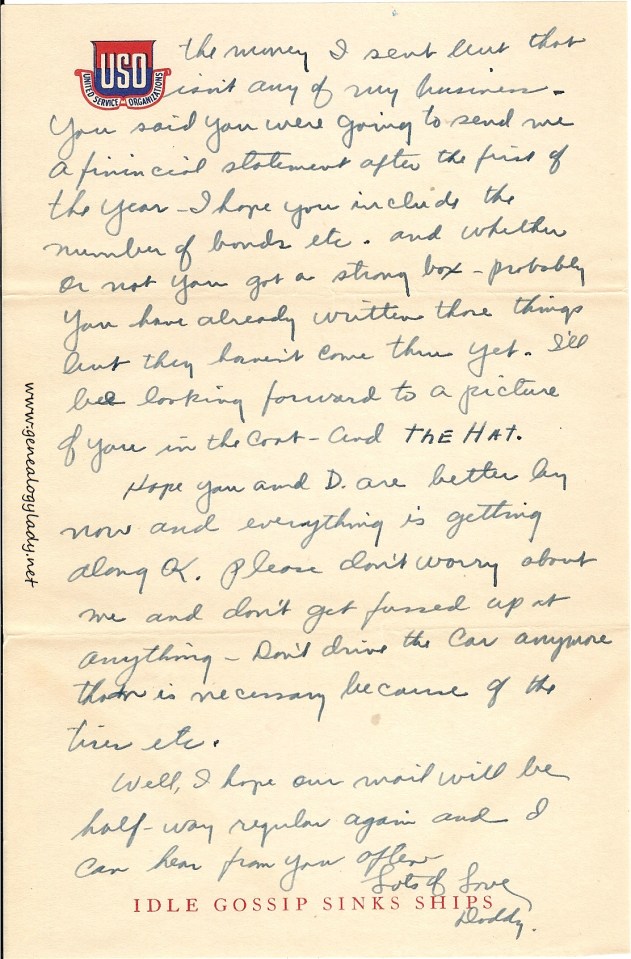 USO
UNITED SERVICE ORGANIZATIONS
the money I sent but that
isn't any of my business.
You said you were going to send me
a finincial statement after the first of
the year - I hope you include the
number of bonds etc. and whether
or not you got a strong box - probably
you have already written those things
but they haven't come thru yet. I'll
be looking forward to a picture
of you in the coat - and THE HAT.
Hope you and D. are better by
now and everything is getting
along OK. Please don't worry about
me and don't get fussed up at
anything - Don't drive the car anymore
than is necessary because of the
tires etc.
Well, I hope our mail will be
half-way regular again and I
can hear from you often
Lots of Love,
Daddy.
IDLE GOSSIP SINKS SHIPS
www.genealogylady.net